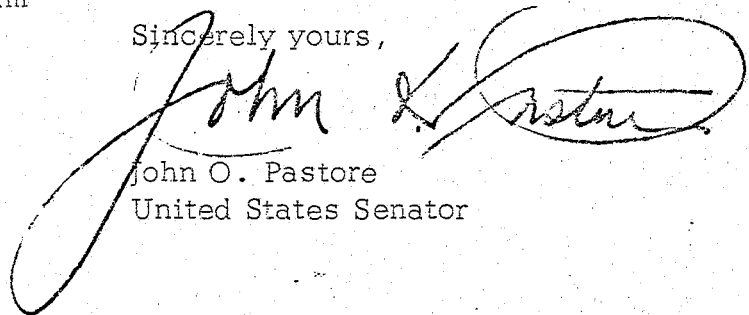 Sincerely yours,
John O. Pastore
John O. Pastore
United States Senator